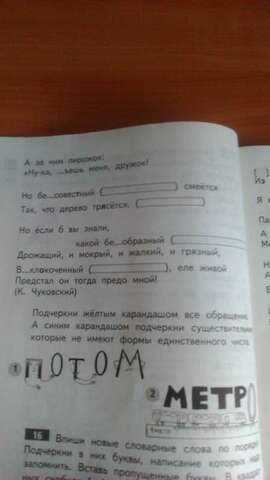 А за ним пирожок:
«Ну-ка, ...ешь меня, дружок!
Но бе...совестный смеётся
Так, что дерево трясётся.
Но если б вы знали,
какой бе...образный
Дрожащий, и мокрый, и жалкий, и грязный,
В...клокоченный , еле живой
Предстал он тогда предо мной!
(К. Чуковский)
Подчеркни жёлтым карандашом все обращения.
А синим карандашом подчеркни существительные
которые не имеют формы единственного числа.
1 ПОТОМ
2 МЕТРО
16 Впиши новые словарные слова по порядку
Подчеркни в них буквы, написание которых
запомнить. Вставь пропущенные буквы. В